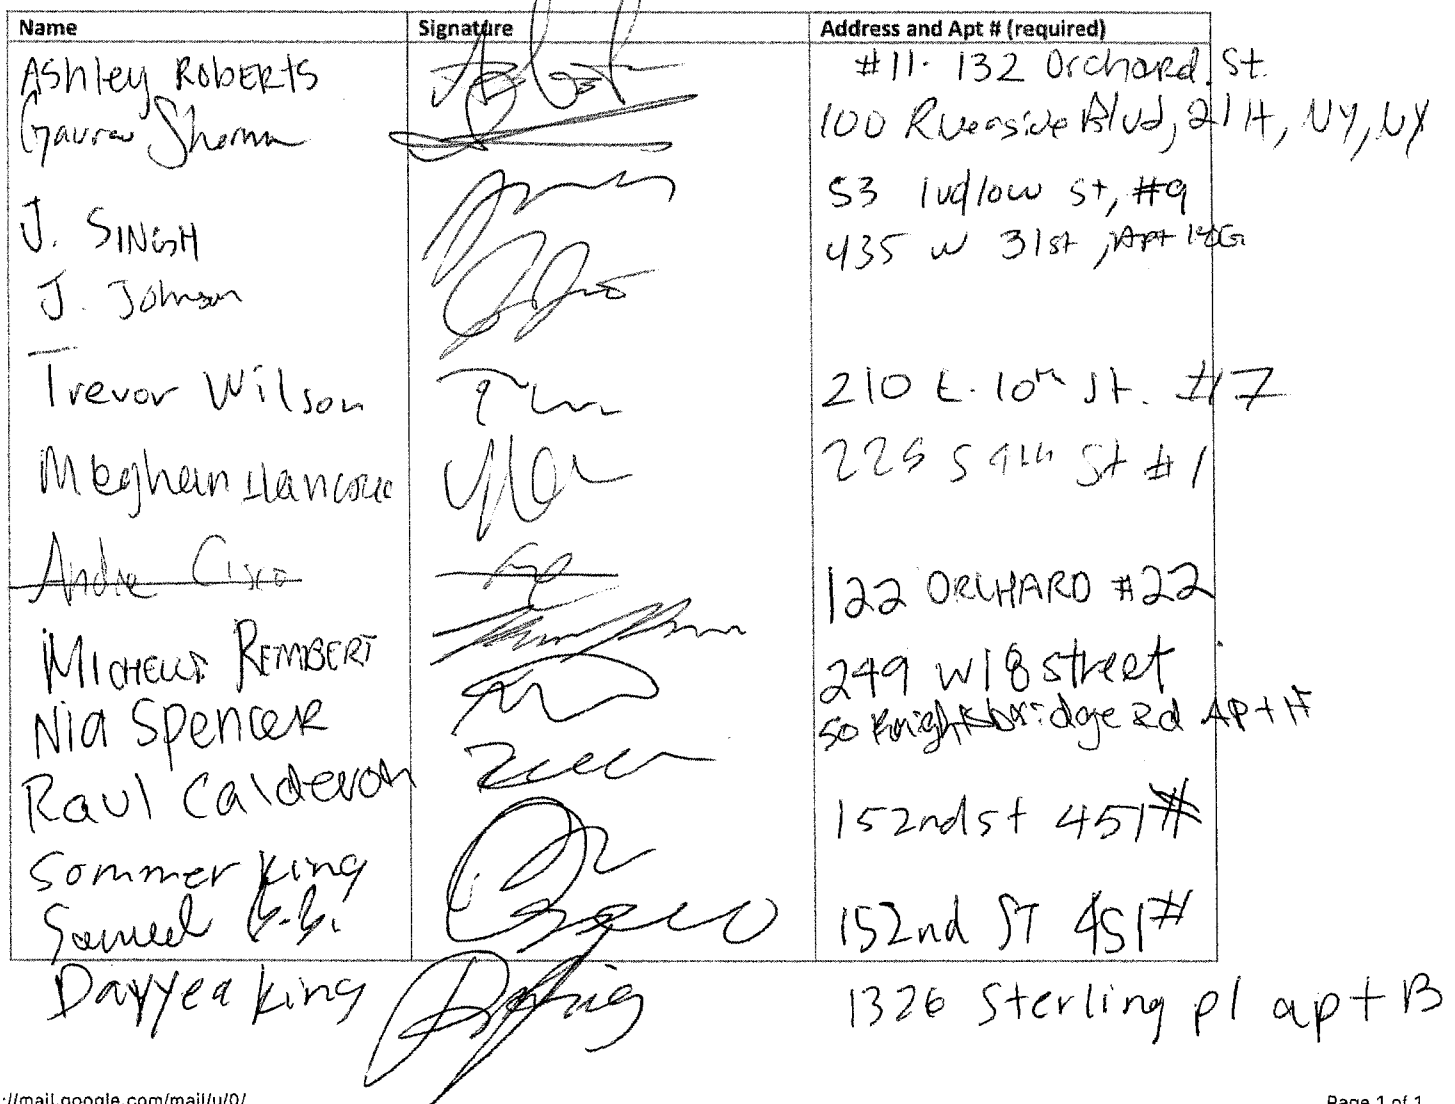 Name Signature Address and Apt # (required)
Ashley ROBERTS #11. 132 Orchard St.
Gaurav Sharma 100 Riverside Blvd, 21H, NY, NY
J. SINGH 53 ludlow st, #9
J. Johnson 435 W 31st, Apt
Trevor Wilson 210 E. 10th St. #17
Meghan 225 S 4th St #1
Andre Cisco
122 ORCHARD #22
MICHELLE REMBERT 249 W18 street
Nia Spencer 50 Knightsbridge Rd Apt
Raul Calderon 152nd st 451#
Sommer King
Samuel 152nd ST 451#
Dayyea King 1326 Sterling pl apt B
://mail.google.com/mail/u/0/ Page 1 of 1